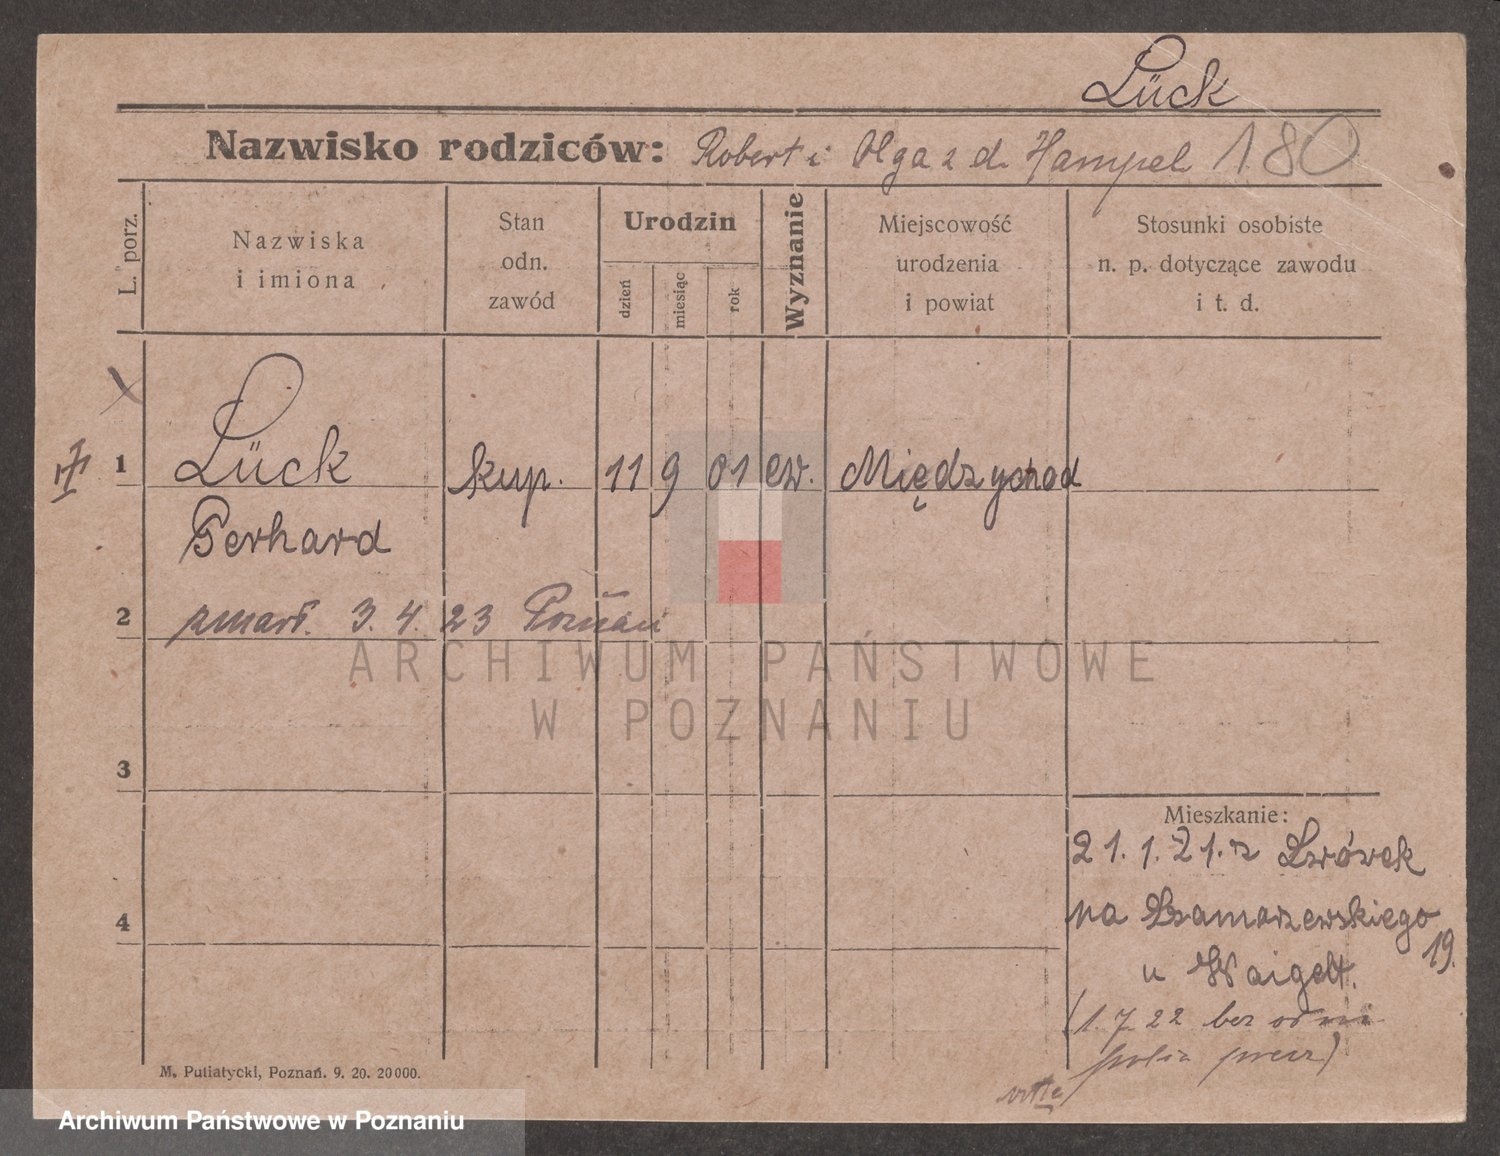 Lück
Nazwisko rodziców: Robert i Olga z d. Hampel 180
L. porz.
Nazwiska
i imiona
Stan
odn.
zawód
Urodzin
dzień
miesiąc
rok
Wyznanie
Miejscowość
urodzenia
i powiat
Stosunki osobiste
n. p. dotyczące zawodu
i t. d.
1 Lück kup. 11 9 01 ew. Międzychod
Gerhard
2 zmarł. 3. 4. 23 Poznań
ARCHIWUM PAŃSTWOWE
W POZNANIU
3
4
Mieszkanie:
21. 1. 21. z Lwówek
na Szamarzewskiego
19.
u Waigelt.
(1. 7. 22 bez
M. Putiatycki, Poznań. 9. 20. 20000.
Archiwum Państwowe w Poznaniu